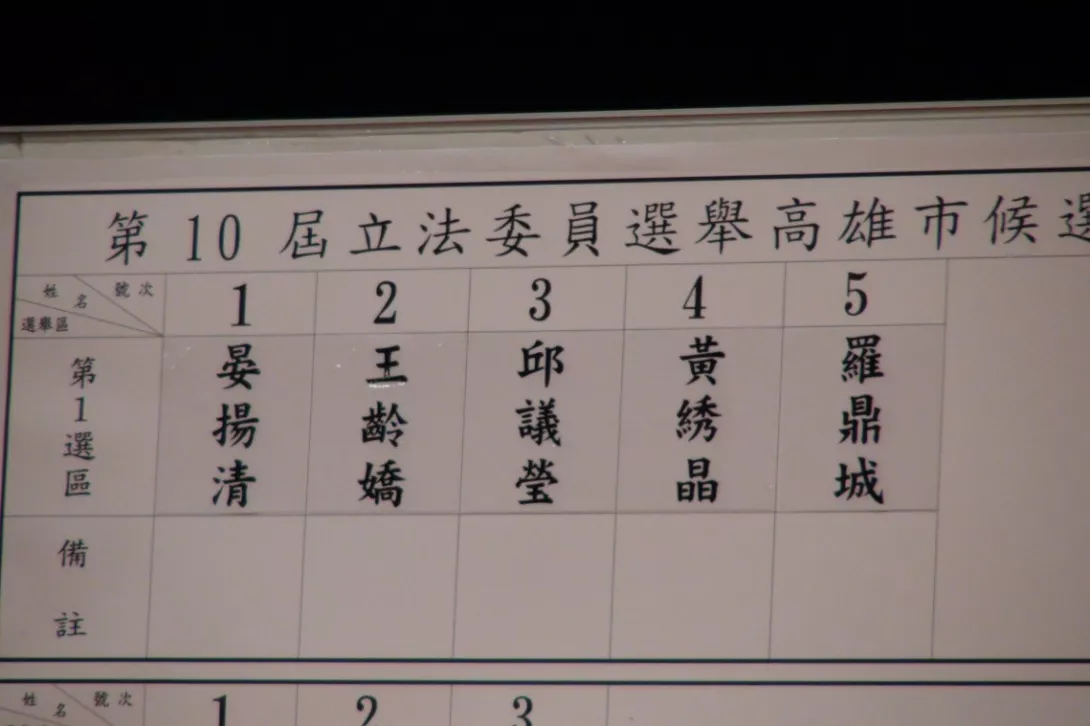 第10屆立法委員選舉高雄市候選
姓名 號次 選舉區 1 2 3 4 5
第1選區 晏揚清 王齡嬌 邱議瑩 黃綉晶 羅鼎城
備註
姓名 號次 1 2 3